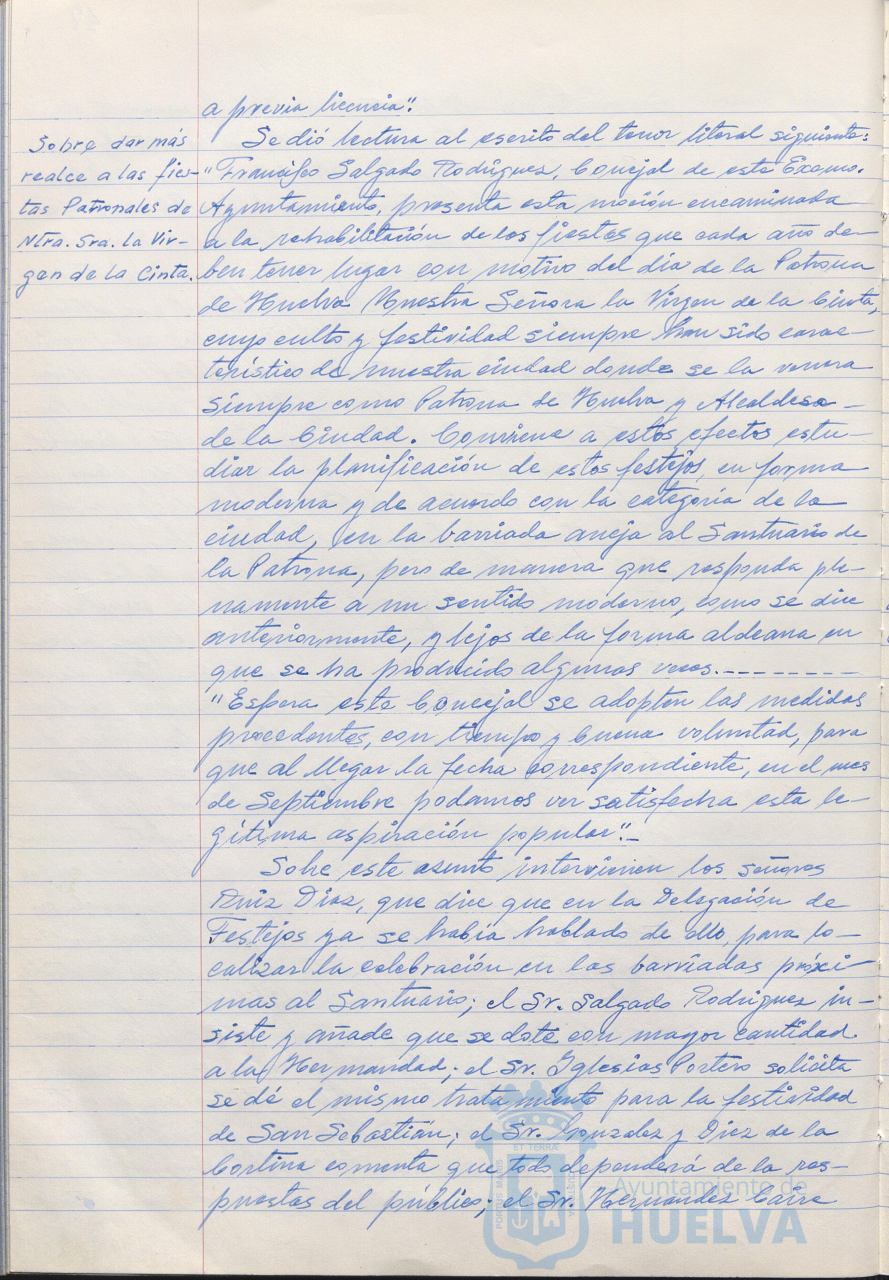 a previa licencia".
Sobre dar más
realce a las fies-
tas Patronales de
Ntra. Sra. la Vir-
gen de la Cinta.
Se dió lectura al escrito del tenor literal siguiente:
"Francisco Salgado Rodríguez, Concejal de este Excmo.
Ayuntamiento, presenta esta moción encaminada
a la rehabilitación de las fiestas que cada año de-
ben tener lugar con motivo del día de la Patrona
de Huelva Nuestra Señora la Virgen de la Cinta,
cuyo culto y festividad siempre han sido carac-
terístico de nuestra ciudad donde se la venera
siempre como Patrona de Huelva y Alcaldesa -
de la Ciudad. Conviene a estos efectos estu-
diar la planificación de estos festejos, en forma
moderna y de acuerdo con la categoría de la
ciudad, en la barriada aneja al Santuario de
la Patrona, pero de manera que responda ple-
namente a un sentido moderno, como se dice
anteriormente, y lejos de la forma aldeana en
que se ha producido algunas veces.---------
"Espera este Concejal se adopten las medidas
procedentes, con tiempo y buena voluntad, para
que al llegar la fecha correspondiente, en el mes
de Septiembre podamos ver satisfecha esta le-
gítima aspiración popular".-
Sobre este asunto intervienen los señores
Ruiz Díaz, que dice que en la Delegación de
Festejos ya se había hablado de ello, para lo-
calizar la celebración en las barriadas próxi-
mas al Santuario; el Sr. Salgado Rodríguez in-
siste y añade que se dote con mayor cantidad
a la Hermandad; el Sr. Iglesias Portero solicita
se dé el mismo tratamiento para la festividad
de San Sebastián; el Sr. González y Díez de la
Cortina comenta que todo dependerá de la res-
puestas del público; el Sr. Hernández
PORTUS MARIS
ET TERRAE
Ayuntamiento de
HUELVA